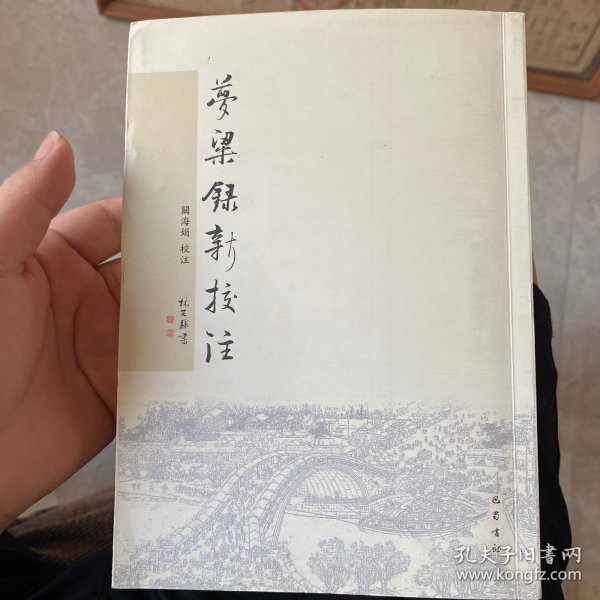 夢梁録新校注
闞海娟 校注
林其錟書
巴蜀書社
孔夫子旧书网
www.kongfz.com